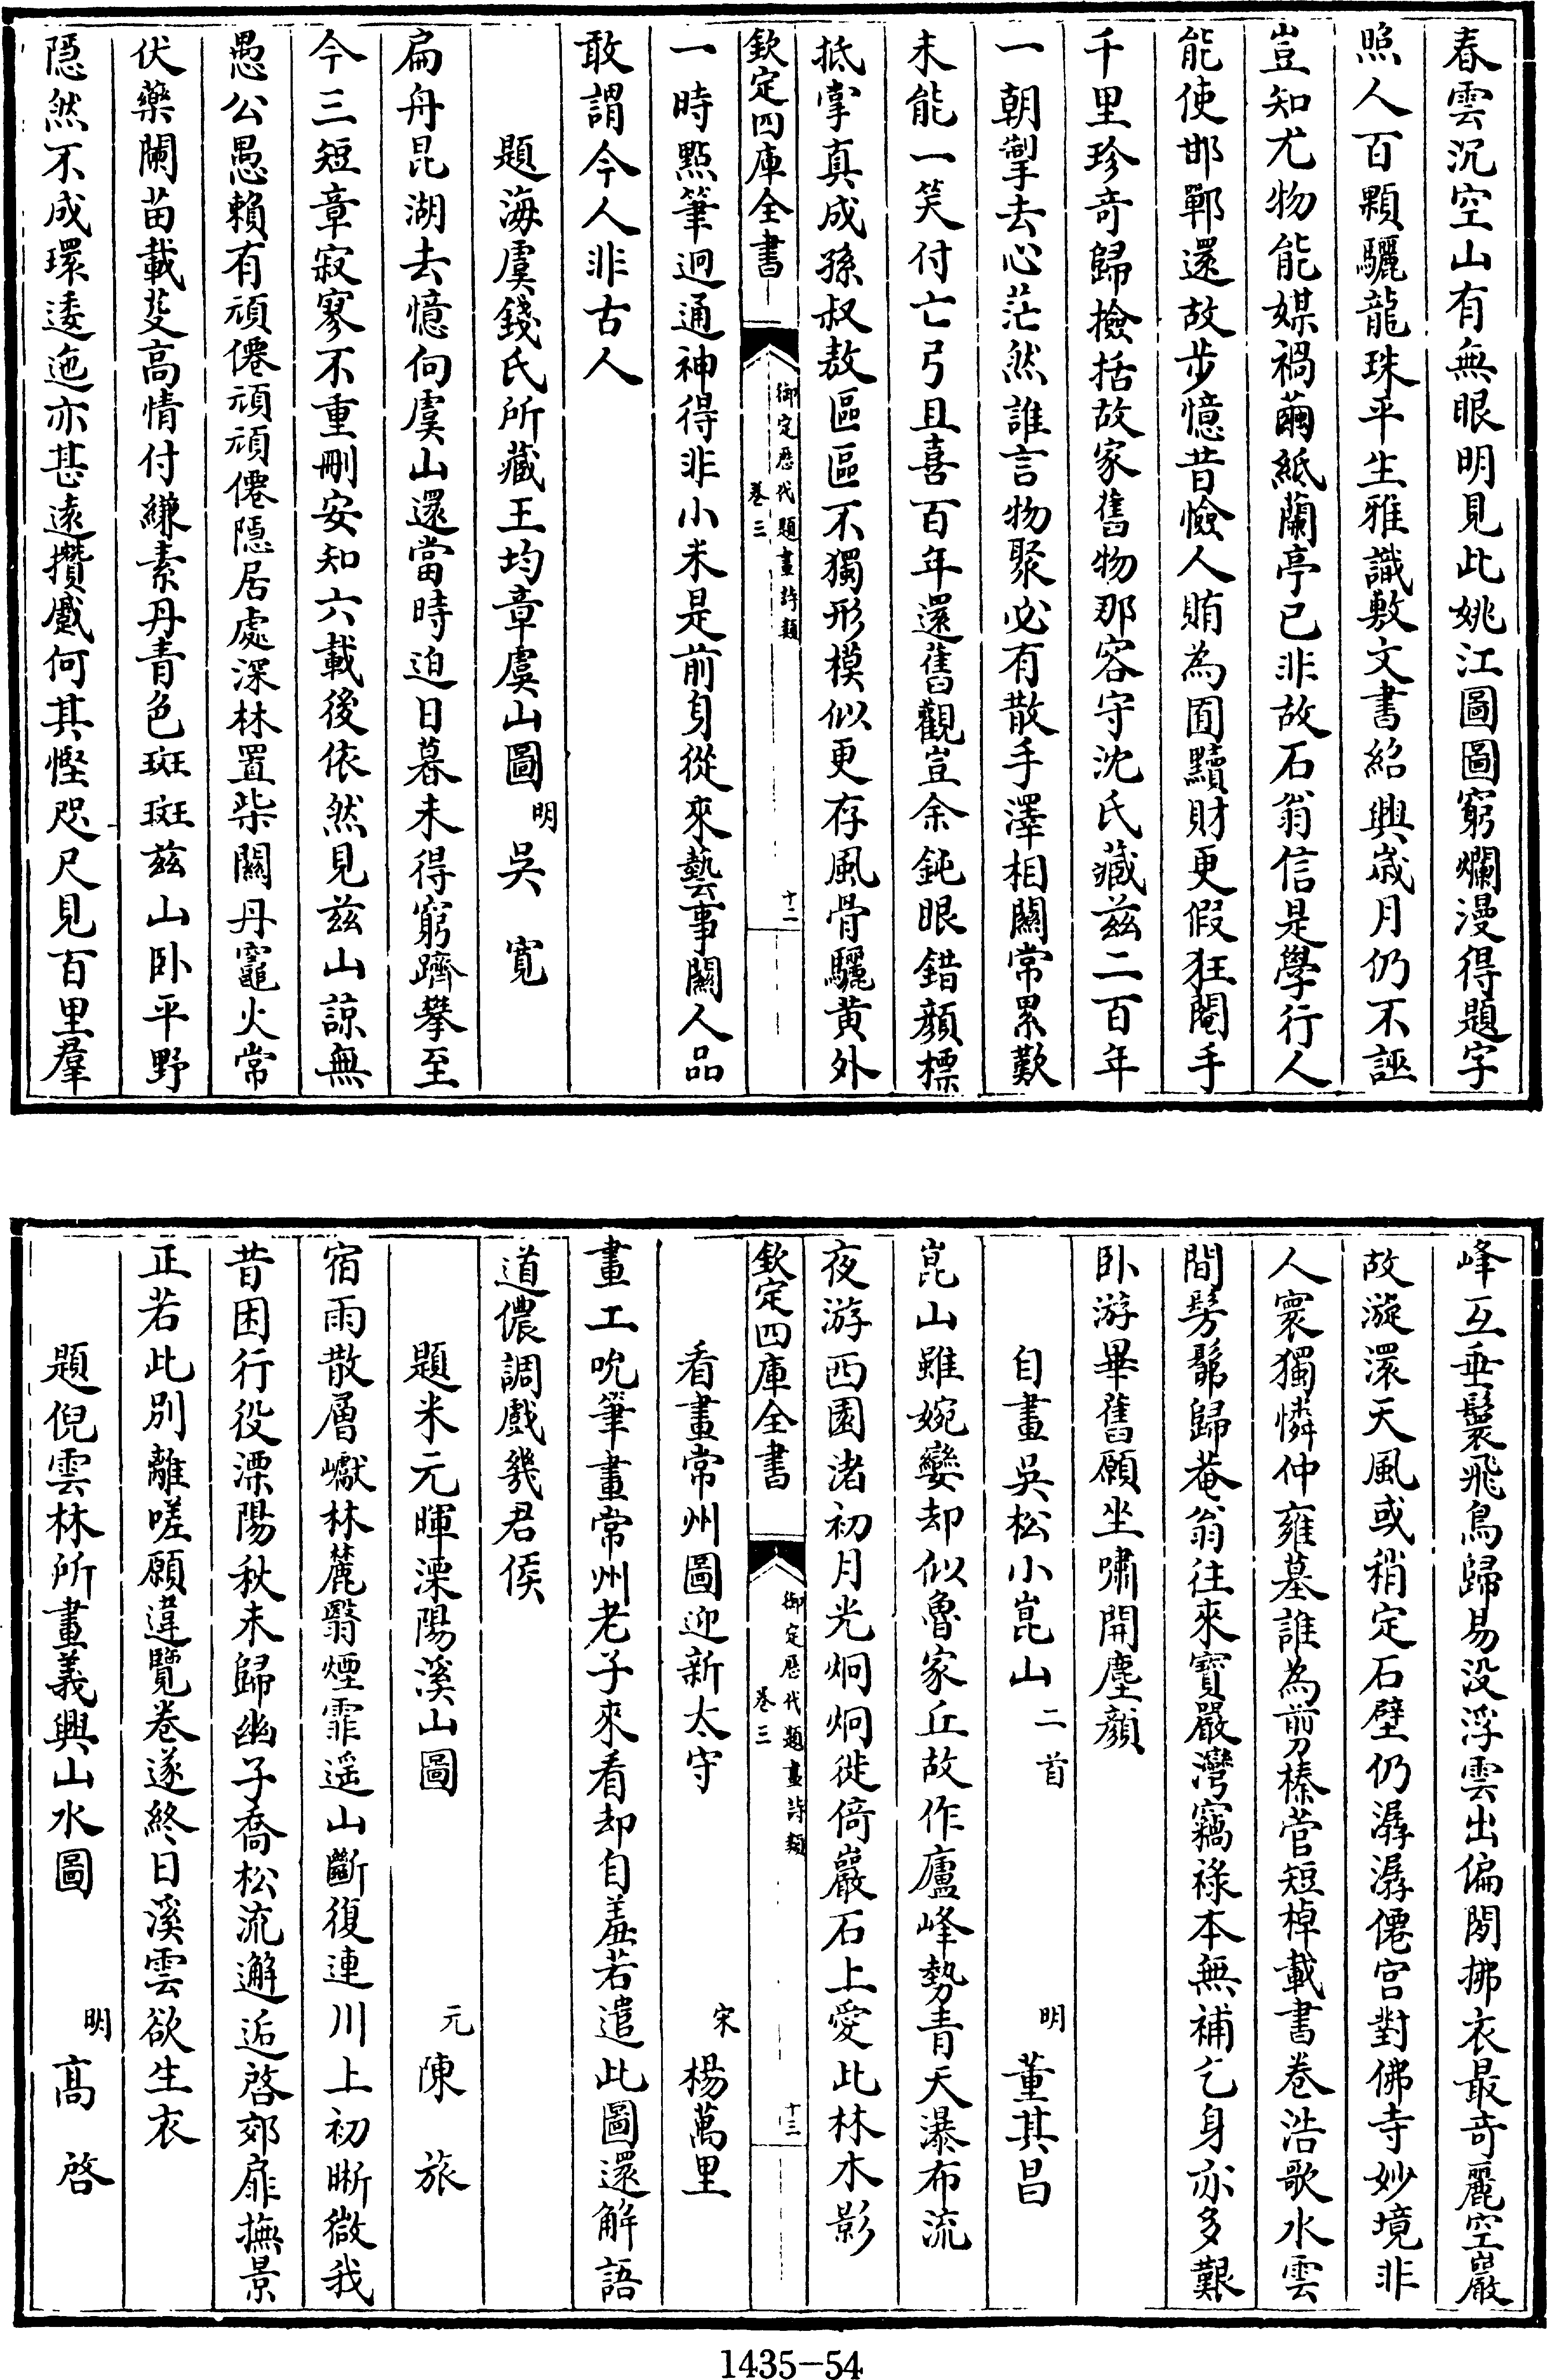 春雲沉空山有無眼明見此姚江圖圖窮爛漫得題字
照人百顆驪龍珠平生雅識敷文書紹興歲月仍不誣
豈知尤物能媒禍繭紙蘭亭已非故石翁信是學行人
能使邯鄲還故步憶昔憸人賄為囿黷財更假狂閹手
千里珍奇歸撿括故家舊物那容守沈氏藏兹二百年
一朝掣去心茫然誰言物聚必有散手澤相關常累歎
未能一笑付亡弓且喜百年還舊觀豈余鈍眼錯顔標
抵掌真成孫叔敖區區不獨形模似更存風骨驪黄外
欽定四庫全書
御定歴代題畫詩類
卷三
十二
一時點筆迥通神得非小米是前身從來藝事關人品
敢謂今人非古人
題海虞錢氏所藏王均章虞山圖 明 吳寛
扁舟昆湖去憶向虞山還當時迫日暮未得窮躋攀至
今三短章寂寥不重刪安知六載後依然見兹山諒無
愚公愚賴有頑僊頑頑僊隱居處深林置柴關丹竈火常
伏藥闌苗載芟高情付縑素丹青色斑斑兹山卧平野
隱然不成環逶迤亦甚逺攢蹙何其慳咫尺見百里羣
峰互垂鬟飛鳥歸易没浮雲出偏閒拂衣最奇麗空巖
故漩澴天風或稍定石壁仍潺潺僊宫對佛寺妙境非
人寰獨憐仲雍墓誰為剪榛菅短棹載書卷浩歌水雲
間髣髴歸菴翁往來寳嚴灣竊祿本無補乞身亦多艱
卧游畢舊願坐嘯開塵顔
自畫吳松小崑山 二首 明 董其昌
崑山雖婉孌却似魯家丘故作廬峰勢青天瀑布流
夜游西園渚初月光炯炯徙倚巖石上愛此林木影
欽定四庫全書
御定歴代題畫詩類
卷三
十三
看畫常州圖迎新太守 宋 楊萬里
畫工吮筆畫常州老子來看却自羞若遣此圖還解語
道儂調戲幾君侯
題米元暉溧陽溪山圖 元 陳旅
宿雨散層巘林麓翳煙霏遥山斷復連川上初晰微我
昔困行役溧陽秋未歸幽子喬松流邂逅啓郊扉撫景
正若此別離嗟願違覽卷遂終日溪雲欲生衣
題倪雲林所畫義興山水圖 明 髙啓
1435-54